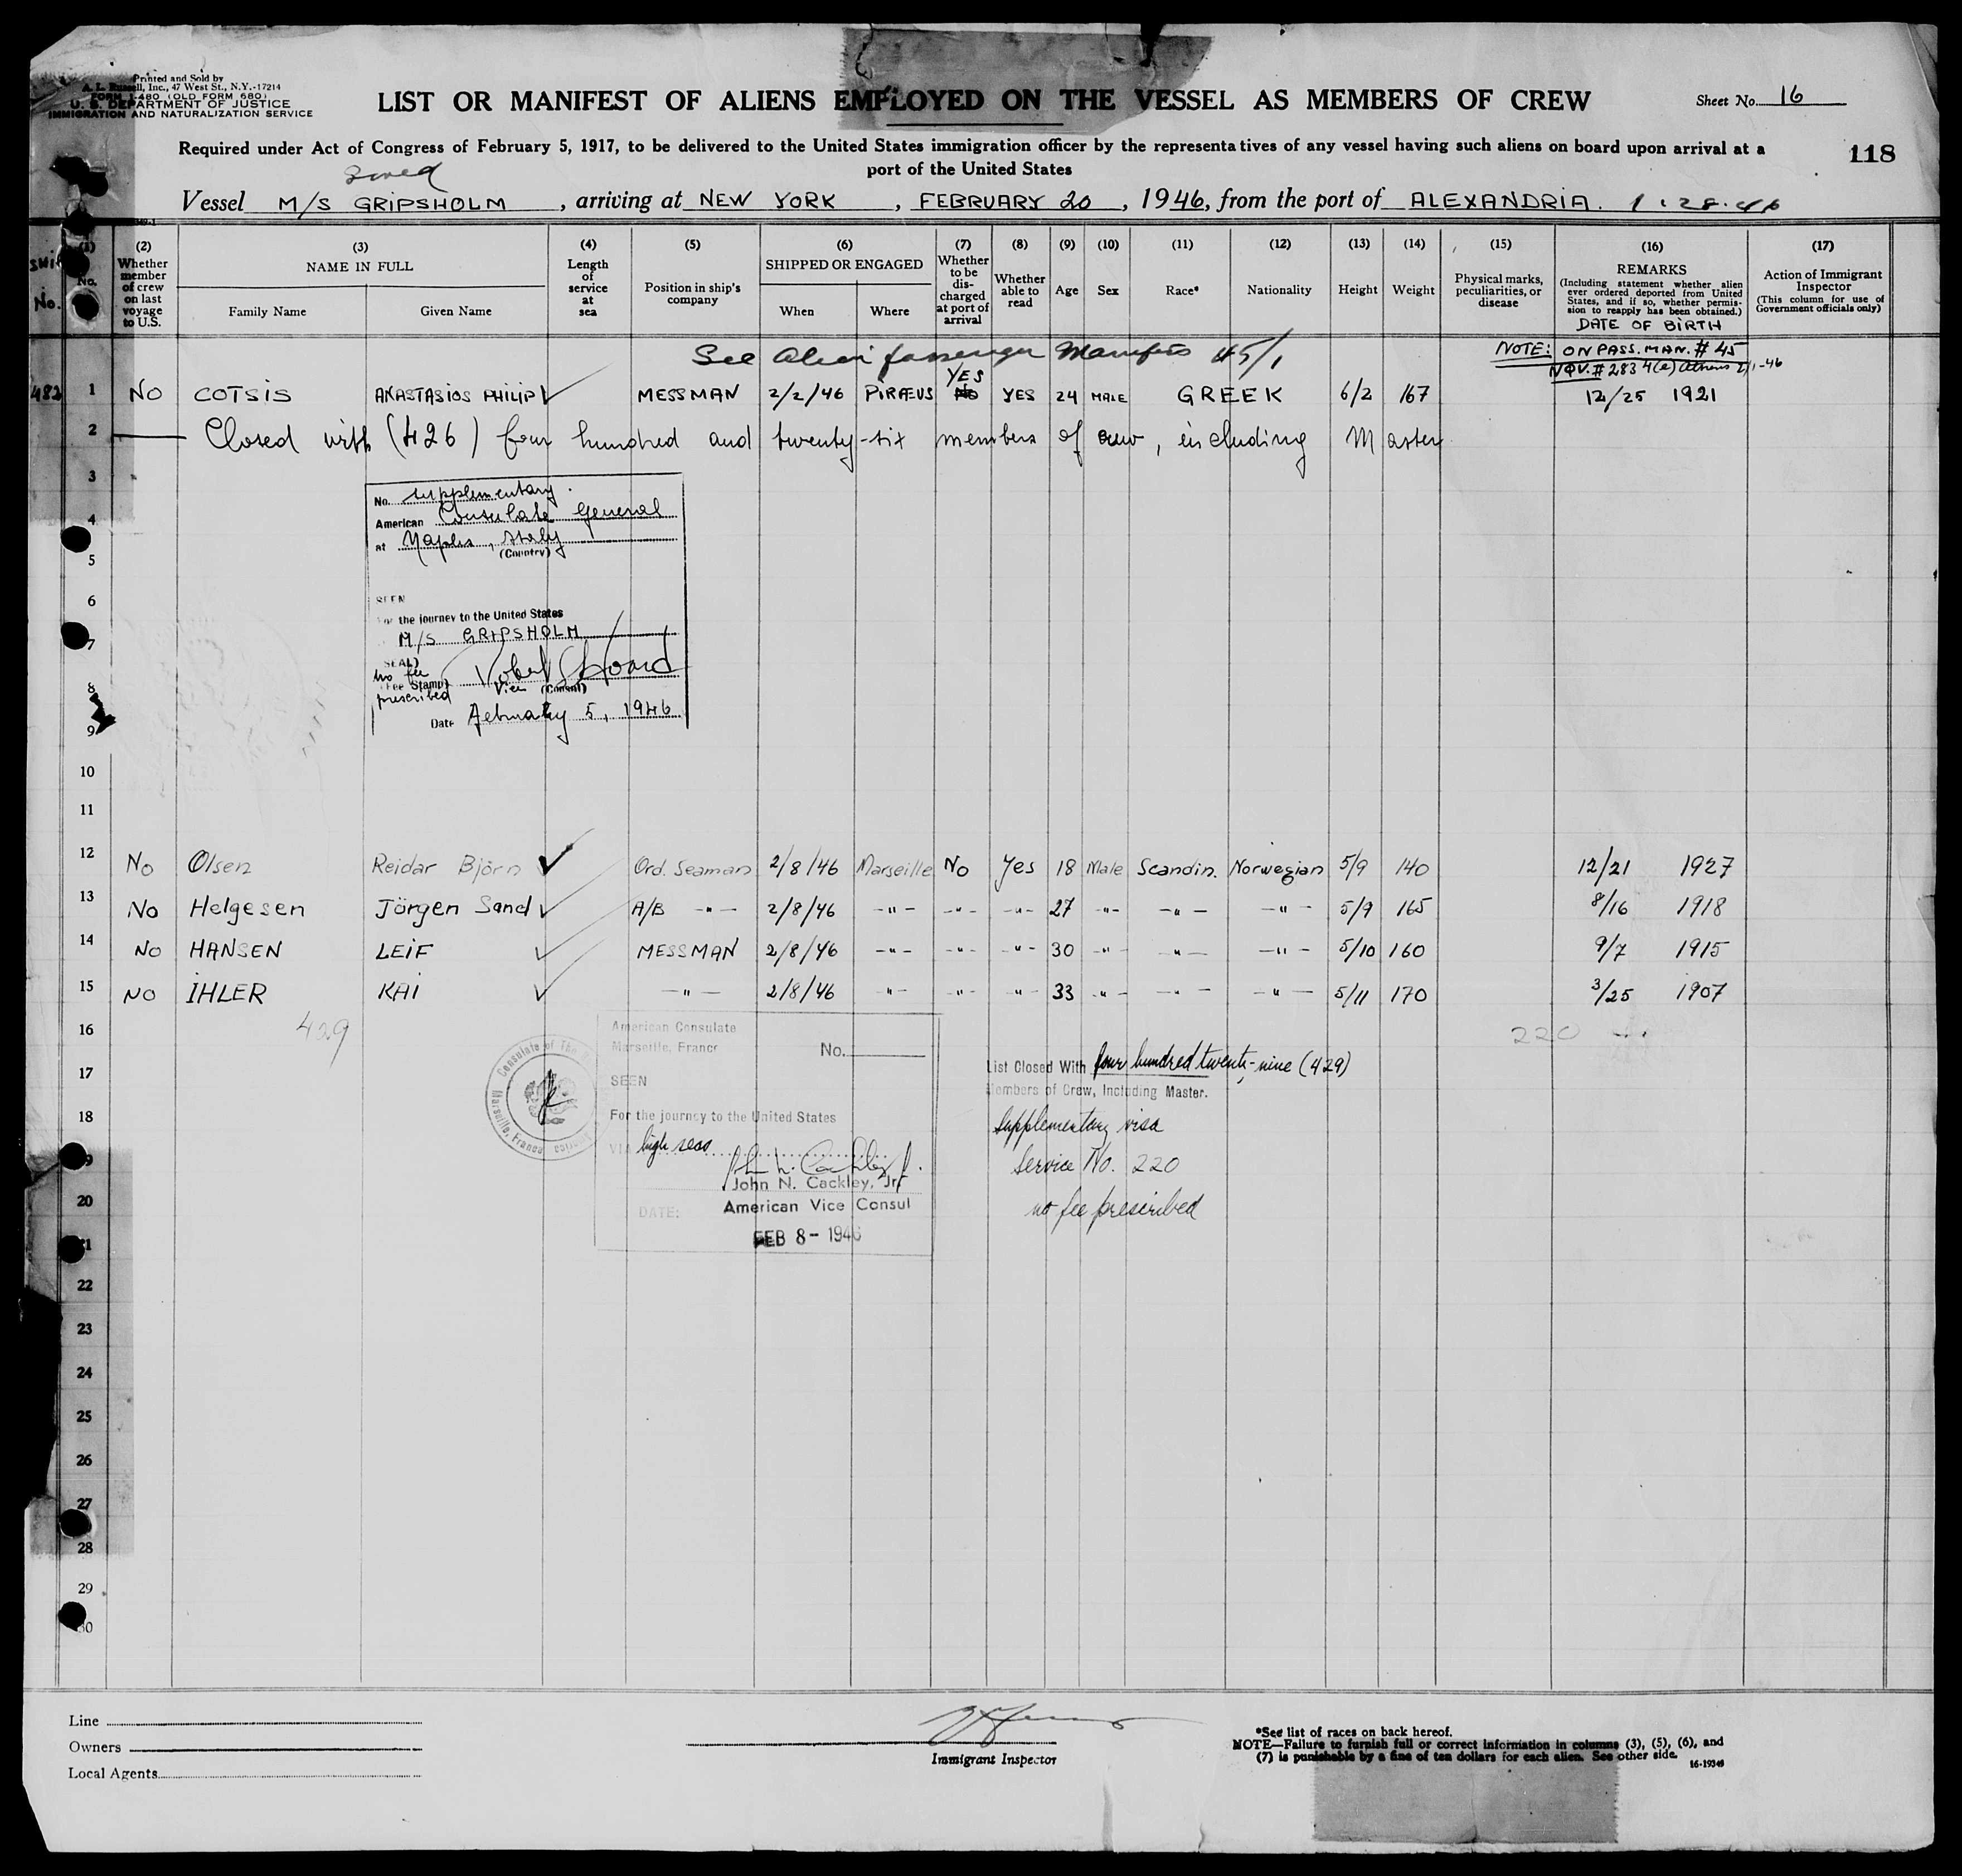 Printed and Sold by
A. L. Russell, Inc., 47 West St., N.Y.-17214
FORM I-480 (OLD FORM 680)
U. S. DEPARTMENT OF JUSTICE
IMMIGRATION AND NATURALIZATION SERVICE
LIST OR MANIFEST OF ALIENS EMPLOYED ON THE VESSEL AS MEMBERS OF CREW
Sheet No. 16
118
Required under Act of Congress of February 5, 1917, to be delivered to the United States immigration officer by the representatives of any vessel having such aliens on board upon arrival at a
port of the United States
Swed
Vessel M/S GRIPSHOLM, arriving at NEW YORK, FEBRUARY 20, 1946, from the port of ALEXANDRIA. 1.28.46
No.
(1) No.
(2) Whether member of crew on last voyage to U.S.
(3) NAME IN FULL
Family Name
Given Name
(4) Length of service at sea
(5) Position in ship's company
(6) SHIPPED OR ENGAGED
When
Where
(7) Whether to be discharged at port of arrival
(8) Whether able to read
(9) Age
(10) Sex
(11) Race*
(12) Nationality
(13) Height
(14) Weight
(15) Physical marks, peculiarities, or disease
(16) REMARKS
(Including statement whether alien ever ordered deported from United States, and if so, whether permission to reapply has been obtained.)
DATE OF BIRTH
(17) Action of Immigrant Inspector
(This column for use of Government officials only)
See Alien Passenger Manifest 45/1
NOTE: ON PASS. MAN. # 45
NQV. # 283 4(e) Athens 2/1-46
YES
482 1 NO COTSIS ANASTASIOS PHILIP ✓ MESSMAN 2/2/46 PIRÆUS NO YES 24 MALE GREEK 6/2 167 12/25 1921
2 Closed with (426) four hundred and twenty-six members of crew, including Master
3
No. supplementary.
American Consulate General
4
at Naples, Italy
(Country)
5
6
SEEN
For the journey to the United States
7
M/S GRIPSHOLM
SEAL)
no fee
(Fee Stamp)
prescribed
8
Vice (Consul)
Date February 5, 1946
9
10
11
12 No Olsen Reidar Björn ✓ Ord. Seaman 2/8/46 Marseille No Yes 18 Male Scandin. Norwegian 5/9 140 12/21 1927
13 No Helgesen Jörgen Sand ✓ A/B -"- 2/8/46 -"- -"- -"- 27 -"- -"- -"- 5/9 165 8/16 1918
14 No HANSEN LEIF ✓ MESSMAN 2/8/46 -"- -"- -"- 30 -"- -"- -"- 5/10 160 9/7 1915
15 NO IHLER KAI ✓ -"- 2/8/46 -"- -"- -"- 33 -"- -"- -"- 5/11 170 3/25 1907
16 429
220
American Consulate
Marseille, France
No.
SEEN
For the journey to the United States
VIA high seas
John N. Cackley, Jr.
John N. Cackley, Jr.
DATE:
American Vice Consul
FEB 8- 1946
Consulate of The
Marseille, France
List Closed With four hundred twenty-nine (429)
Members of Crew, Including Master.
Supplementary visa
Service No. 220
no fee prescribed
17
18
19
20
21
22
23
24
25
26
27
28
29
30
Line
Owners
Local Agents
Immigrant Inspector
*See list of races on back hereof.
NOTE—Failure to furnish full or correct information in columns (3), (5), (6), and
(7) is punishable by a fine of ten dollars for each alien. See other side.
16-19349